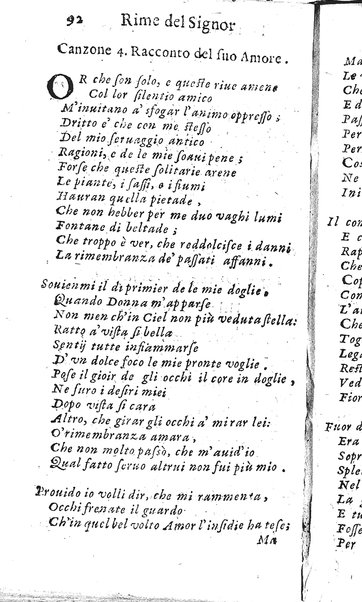 92 Rime del Signor
Canzone 4. Racconto del ſuo Amore.
OR che ſon ſolo, e queſte riue amene
Col lor ſilentio amico
M'inuitano a' sfogar l'animo oppreſſo;
Dritto e' che con me ſteſſo
Del mio ſeruaggio antico
Ragioni, e de le mie ſoaui pene;
Forſe che queſte ſolitarie arene
Le piante, i ſaſſi, o i fiumi
Hauran quella pietade,
Che non hebber per me duo vaghi lumi
Fontane di beltade;
Che troppo è ver, che reddolciſce i danni
La rimembranza de' paſſati affanni.
Souienmi il dì primier de le mie doglie.
Quando Donna m'apparſe
Non men ch'in Ciel non più veduta ſtella:
Ratto a' viſta ſi bella
Sentij tutte infiammarſe
D'vn dolce foco le mie pronte voglie.
Poſe il gioir de gli occhi il core in doglie,
Ne furo i deſiri miei
Dopo viſta ſi cara
Altro, che girar gli occhi a' mirar lei:
O' rimembranza amara,
Che non molto paſsò, che m'auid'io
Qual fatto ſeruo altrui non fui più mio.
Prouido io volli dir, che mi rammenta,
Occhi frenate il guardo
Ch'in quel bel volto Amor l'inſidie ha teſe;
Ma
Ma
Le
Che
Paſ
Per
Per
Coſ
Ne
Ini
Il con
E c
Rap
Che
Cop
Che
L'a
Che
Tog
Lega
Reſt
Ved
Fior
Fuor d
Era
Sopr
Sple
Nel
E tu
Foſſe
Per